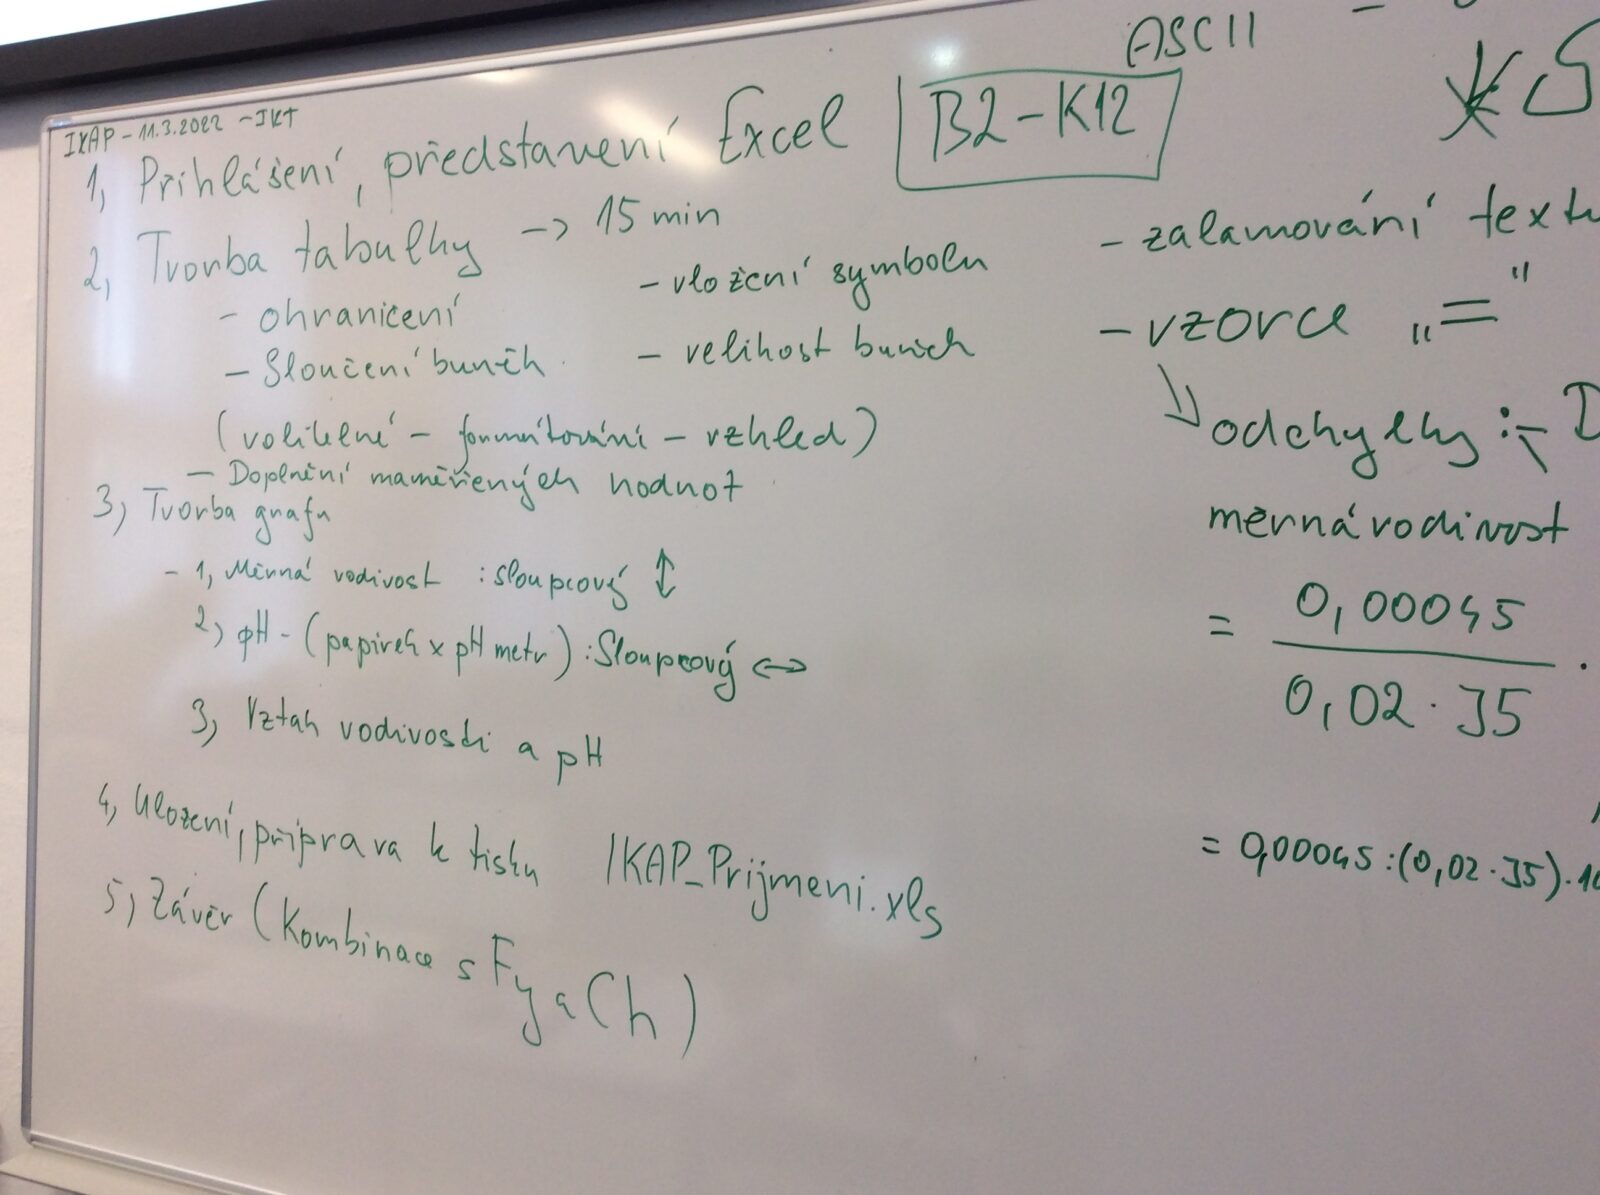 IKAP - 11.3.2022 - IKT
1, Přihlášení, představení Excel
B2 - K12
ASCII
2, Tvorba tabulky -> 15 min
- ohraničení
- Sloučení buněk
- vložení symbolu
- velikost buněk
(volitelné - formátování - vzhled)
- Doplnění naměřených hodnot
3, Tvorba grafu
- 1, Měrná vodivost : sloupcový ↕
2, pH - (papírek x pH metr) : Sloupcový ↔
3, Vztah vodivosti a pH
4, Uložení, příprava k tisku IKAP_Prijmeni.xls
5, Závěr (Kombinace s Fy a Ch)
- zalamování textu
- vzorce „="
odchylky :-D
měrná vodivost
= 0,00045
0,02 · 35
= 0,00045 : (0,02 · 35) · 10